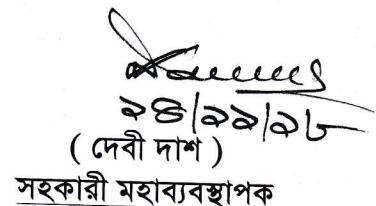 ২৪/১১/১৮
( দেবী দাশ )
সহকারী মহাব্যবস্থাপক